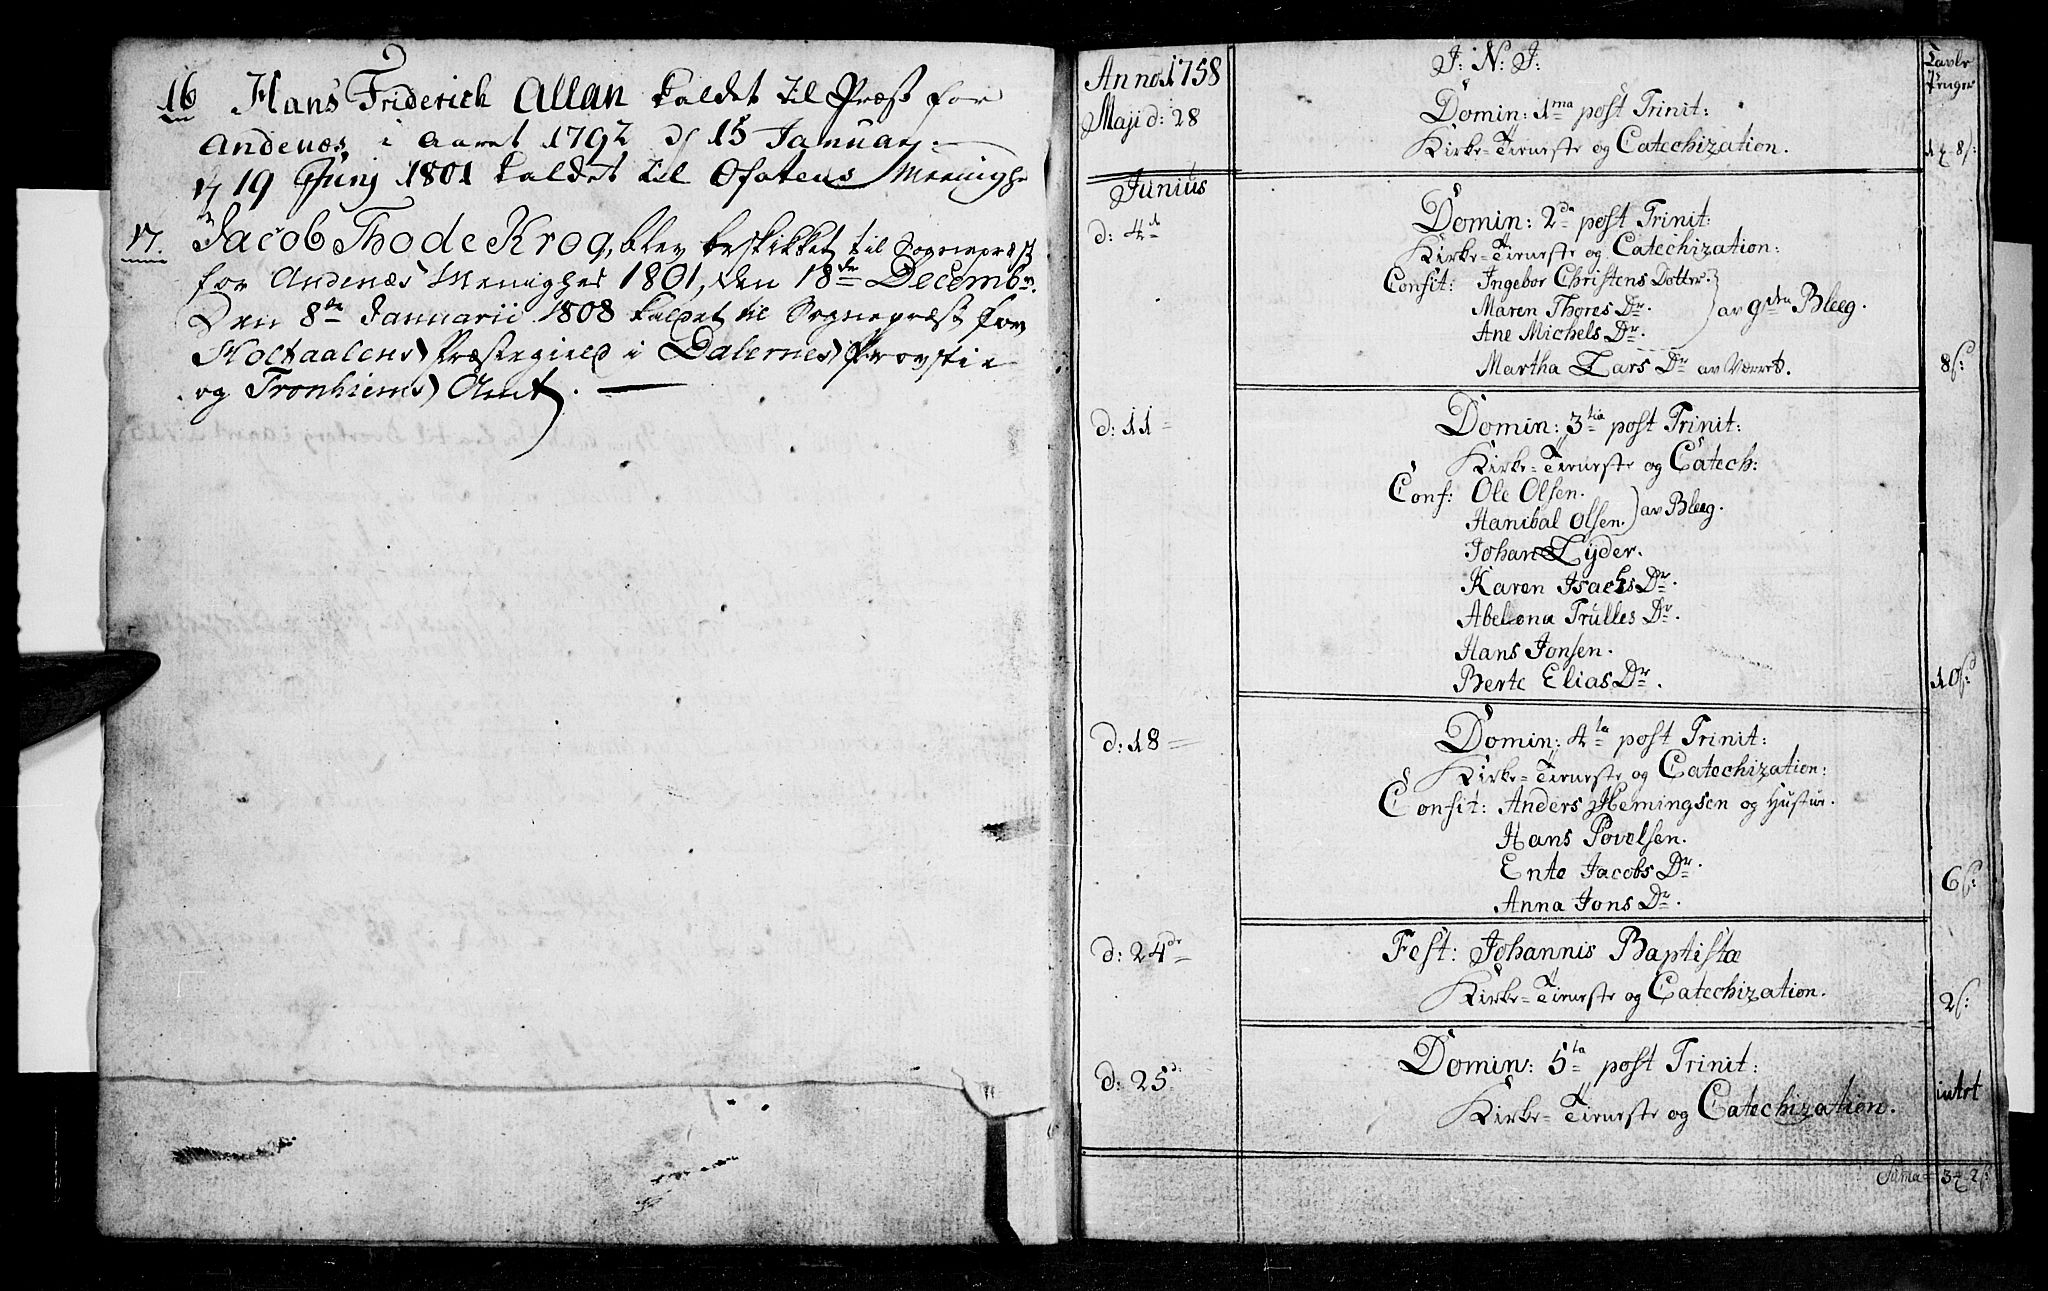 16 Hans Friderich Allan kaldet til Præst for
Andenæs i Aaret 1792 d 15 Januar.
d 19 Junj 1801 kaldet til Ofotens Menighe
17. Jacob Thode Krog, blev beskikket til Sognepræst
for Andenæs Menighed 1801, den 18de Decembr.
Den 8de Januarii 1808 kaldet til Sognepræst for
Holtaalens Præstegield i Dalernes Provstie
og Tronhiems Amt.
Anno 1758
J: N: J:
Tavle
Penger
Maji d: 28
Domin: 1ma post Trinit:
Kirke-Tieneste og Catechization.
Junius
d: 4de
Domin: 2da post Trinit:
Kirke-Tieneste og Catechization:
Confit: Ingebor Christens Dotter.
Maren Thores Dr.
av 9den Bleeg.
Ane Michels Dr.
Martha Lars Dr av Værret.
8ß:
d: 11
Domin: 3tia post Trinit:
Kirke-Tieneste og Catech:
Conf: Ole Olsen.
Hanibal Olsen. av Bleeg.
Johan Tyder.
Karen Isachs Dr.
Abelona Trulles Dr.
Hans Jonsen.
Berte Elias Dr.
10ß:
d: 18
Domin: 4ta post Trinit:
Kirke-Tieneste og Catechization:
Confit: Anders Hemingsen og Hustue.
Hans Povelsen.
Ente Jacobs Dr.
Anna Jons Dr.
6ß:
d: 24de
Fest: Johannis Baptistæ
Kirke-Tieneste og Catechization.
2ß:
d: 25
Domin: 5ta post Trinit:
Kirke-Tieneste og Catechization.
intet
Suma